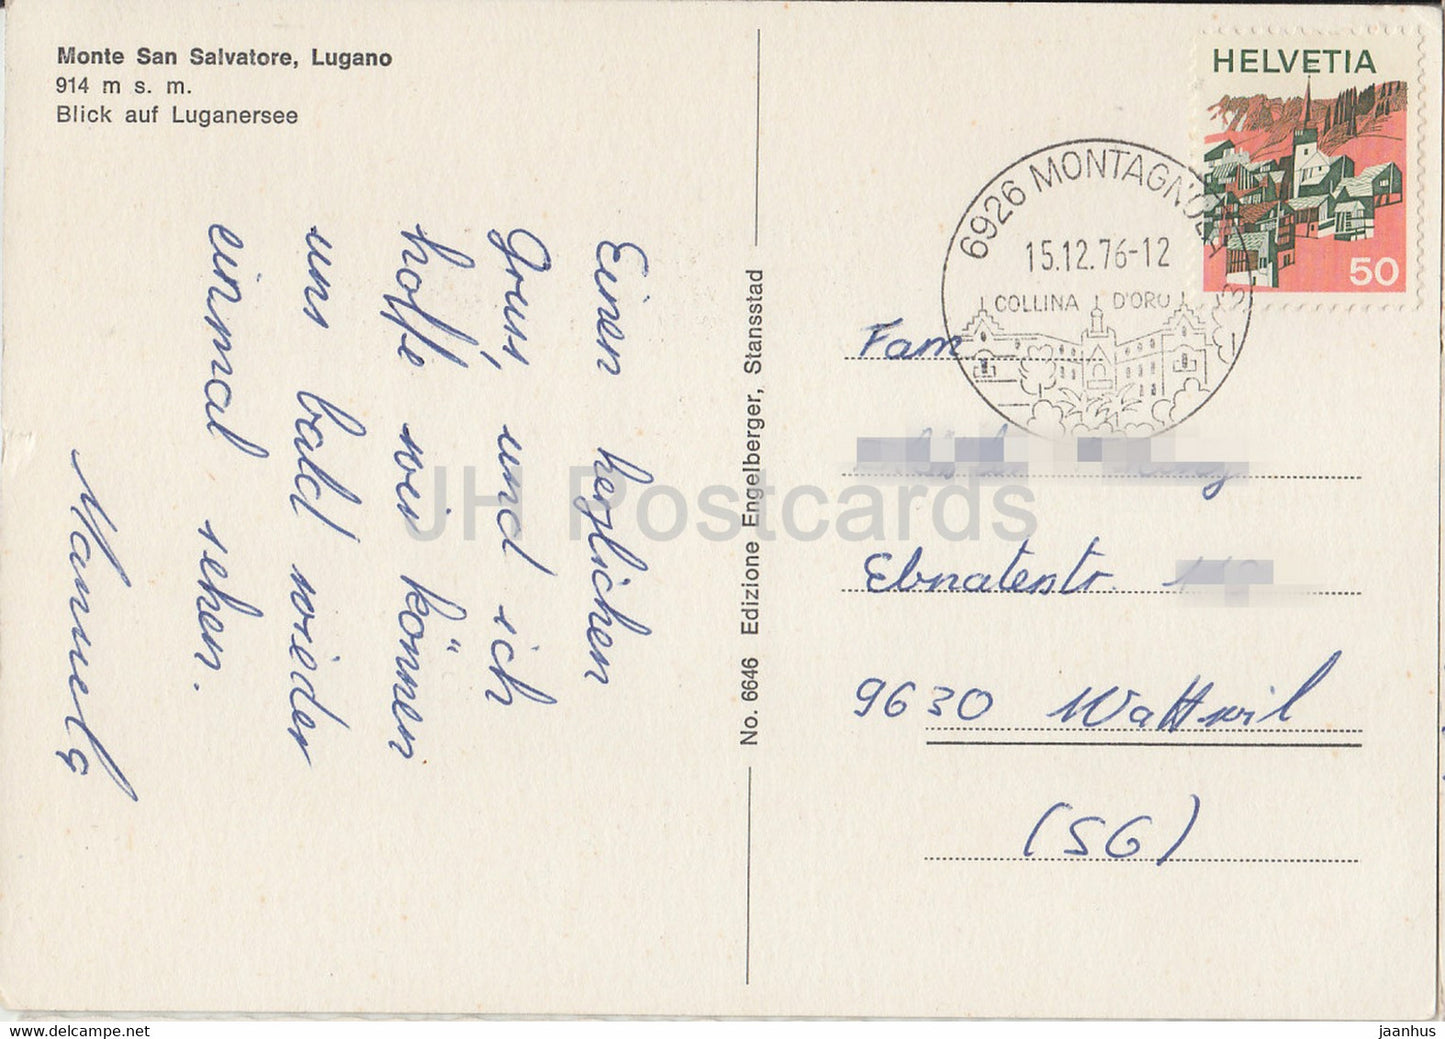 Monte San Salvatore, Lugano
914 m s. m.
Blick auf Luganersee
Einen herzlichen
Gruss, und ich
hoffe wir können
uns bald wieder
einmal sehen.
Manuela
No. 6646 Edizione Engelberger, Stansstad
HELVETIA
50
6926 MONTAGNOLA
15.12.76-12
COLLINA D'ORO
Fam
Ebnaterstr.
9630 Wattwil
(SG)
JH Postcards
www.delcampe.net
jaanhus